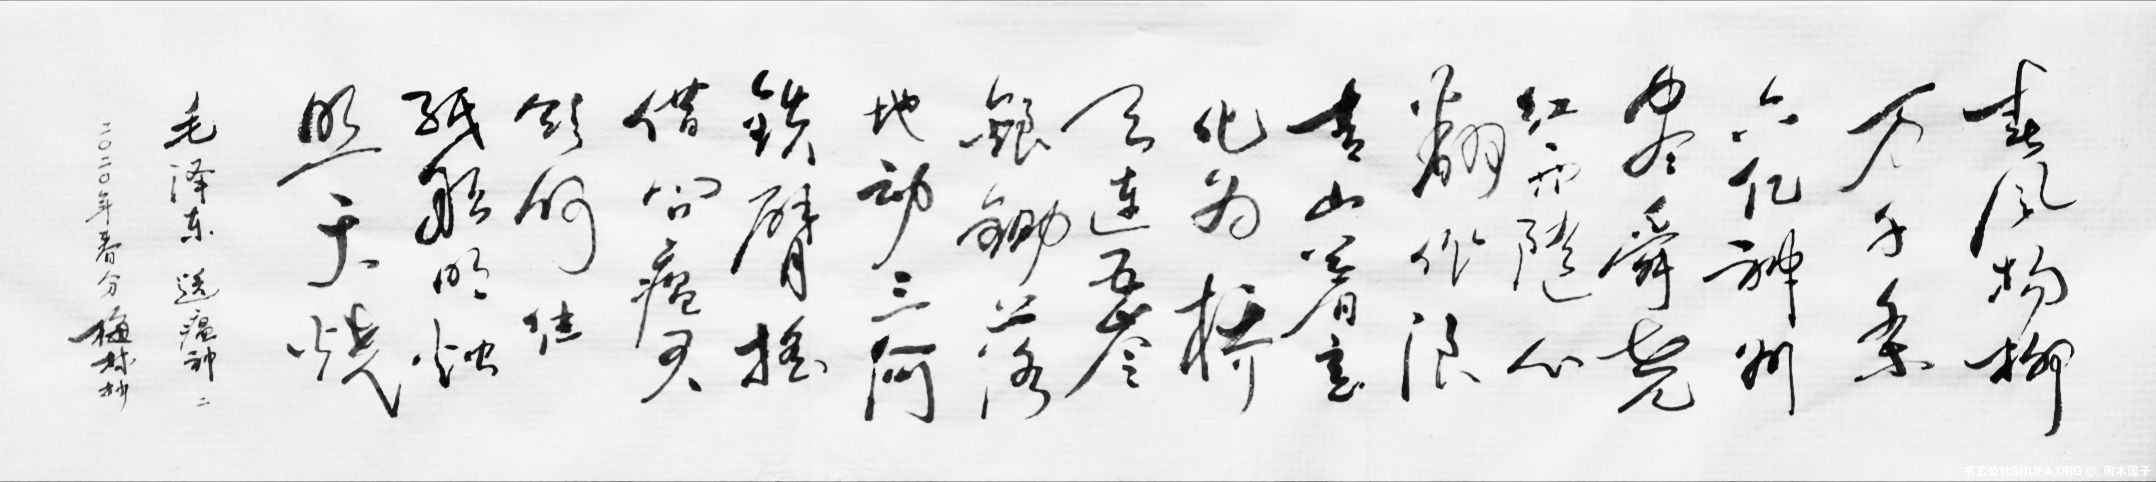 春风杨柳
万千条
六亿神州
尽舜尧
红雨随心
翻作浪
青山着意
化为桥
天连五岭
银锄落
地动三河
鉄臂摇
借问瘟君
欲何往
纸船明烛
照天烧
毛泽东 送瘟神 二
二〇二〇年春分 梅村抄
书艺公社SHUFA.ORG @ 闲木园子